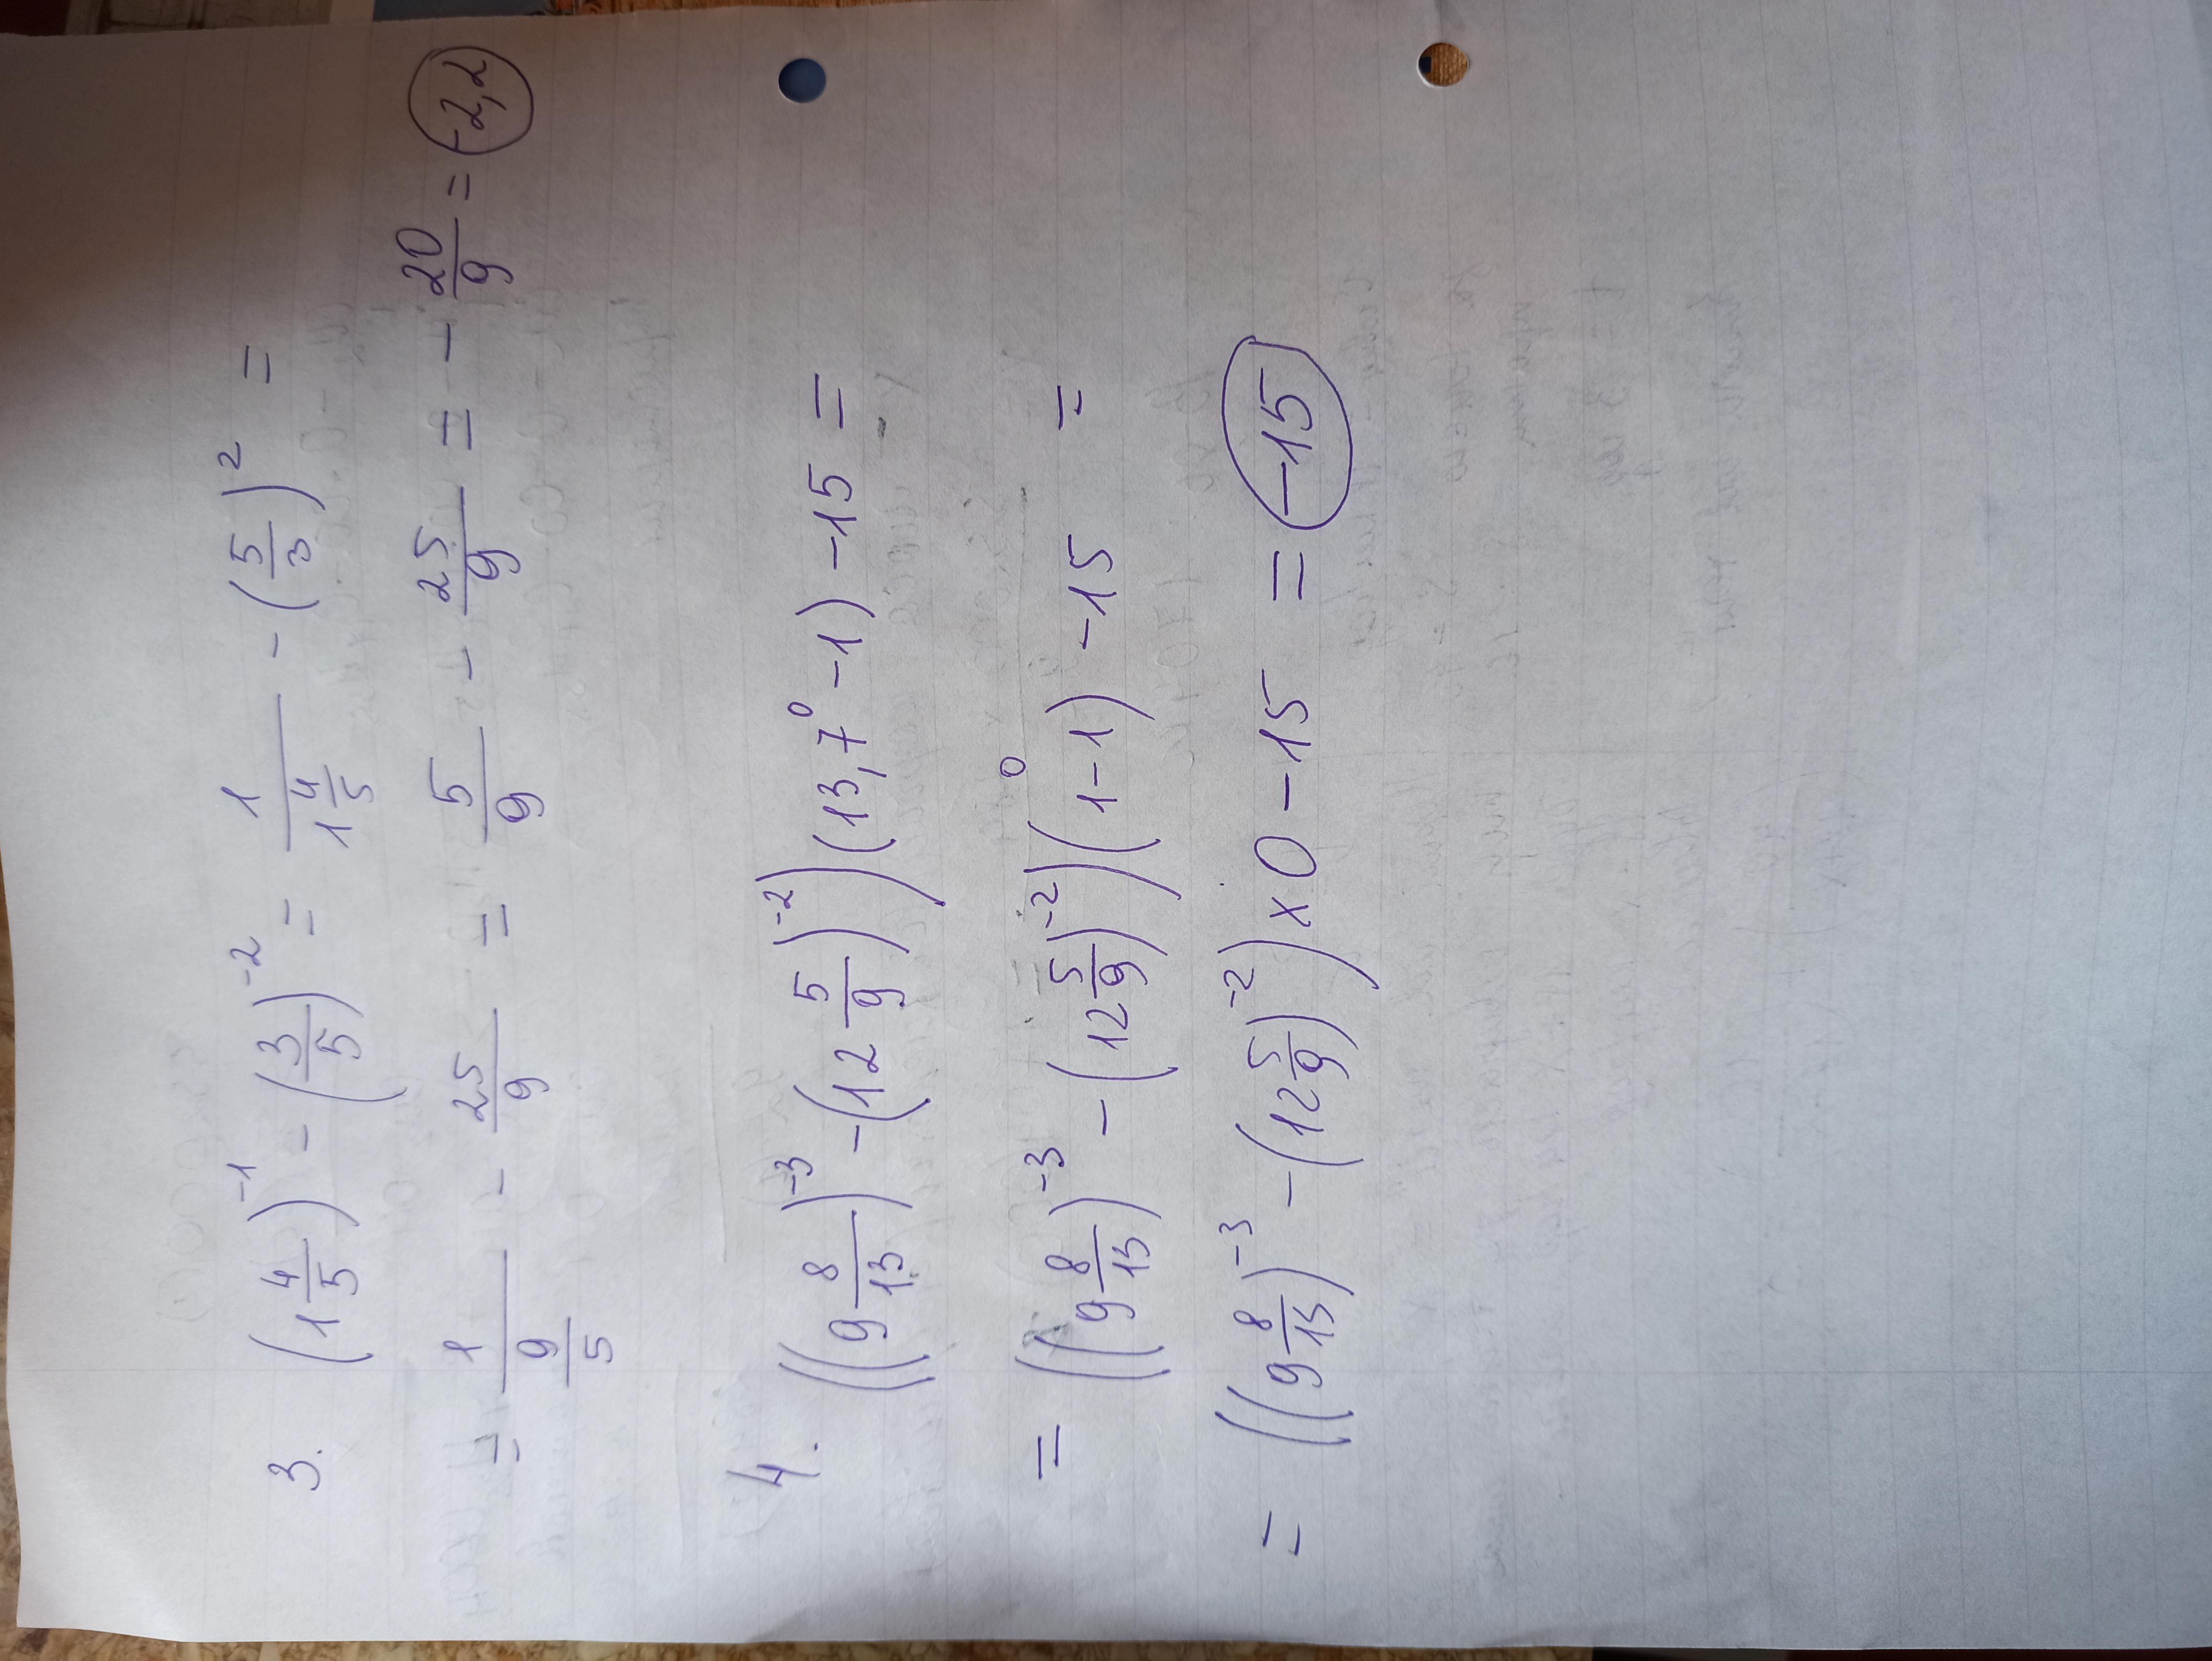 3. (1 4/5)^-1 - (3/5)^-2 = 1/(1 4/5) - (5/3)^2 =
= 1/(9/5) - 25/9 = 5/9 - 25/9 = - 20/9 = -2,2
4. ((9 8/13)^-3 - (12 5/9)^-2)(13,7^0 - 1) - 15 =
= ((9 8/13)^-3 - (12 5/9)^-2)(1 - 1)^0 - 15 =
= ((9 8/15)^-3 - (12 5/9)^-2) x 0 - 15 = -15